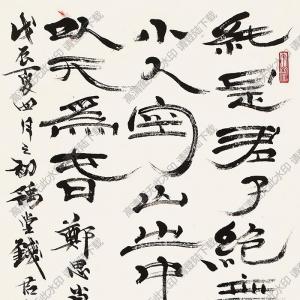 純是君子絕無
小人空山之中
以天為春 鄭思肖
戊辰夏四月之初豫堂錢君